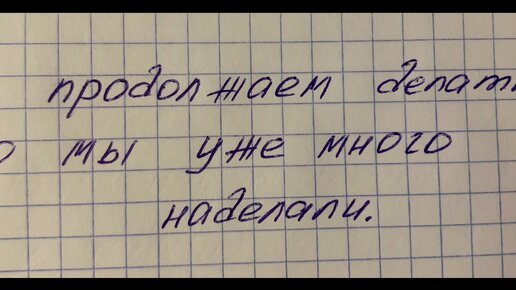 продолжаем делат
о мы уже много
наделали.